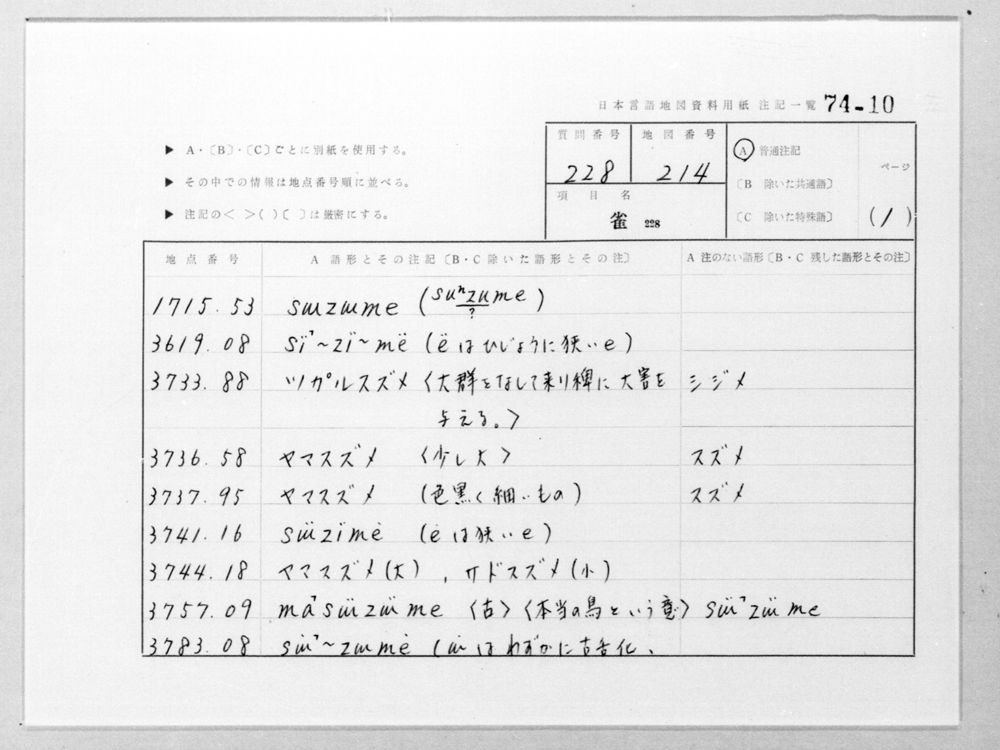 日本言語地図資料用紙 注記一覧 74-10
▶ A・〔B〕・〔C〕ごとに別紙を使用する。
▶ その中での情報は地点番号順に並べる。
▶ 注記の< >( )〔 〕は厳密にする。
質問番号 228
地図番号 214
項目名
雀 228
Ⓐ 普通注記
〔B 除いた共通語〕
〔C 除いた特殊語〕
ページ
(1)
地点番号 A 語形とその注記〔B・C 除いた語形とその注〕 A 注のない語形〔B・C 残した語形とその注〕
1715.53 sɯzɯme (suⁿzume)
?
3619.08 sï˺~zï~më (ëはひじょうに狭いe)
3733.88 ツガルスズメ〈大群をなして来り稗に大害を シジメ
与える。〉
3736.58 ヤマスズメ 〈少し大〉 スズメ
3737.95 ヤマスズメ (色黒く細いもの) スズメ
3741.16 sɯ̈zïmė (ėは狭いe)
3744.18 ヤマスズメ(大), サドスズメ(小)
3757.09 ma˺sɯ̈zɯ̈me 〈古〉〈本当の鳥という意〉 sɯ̈˺zɯ̈me
3783.08 sɯ̈˺~zɯmė (ɯ̈はわずかに中舌化、